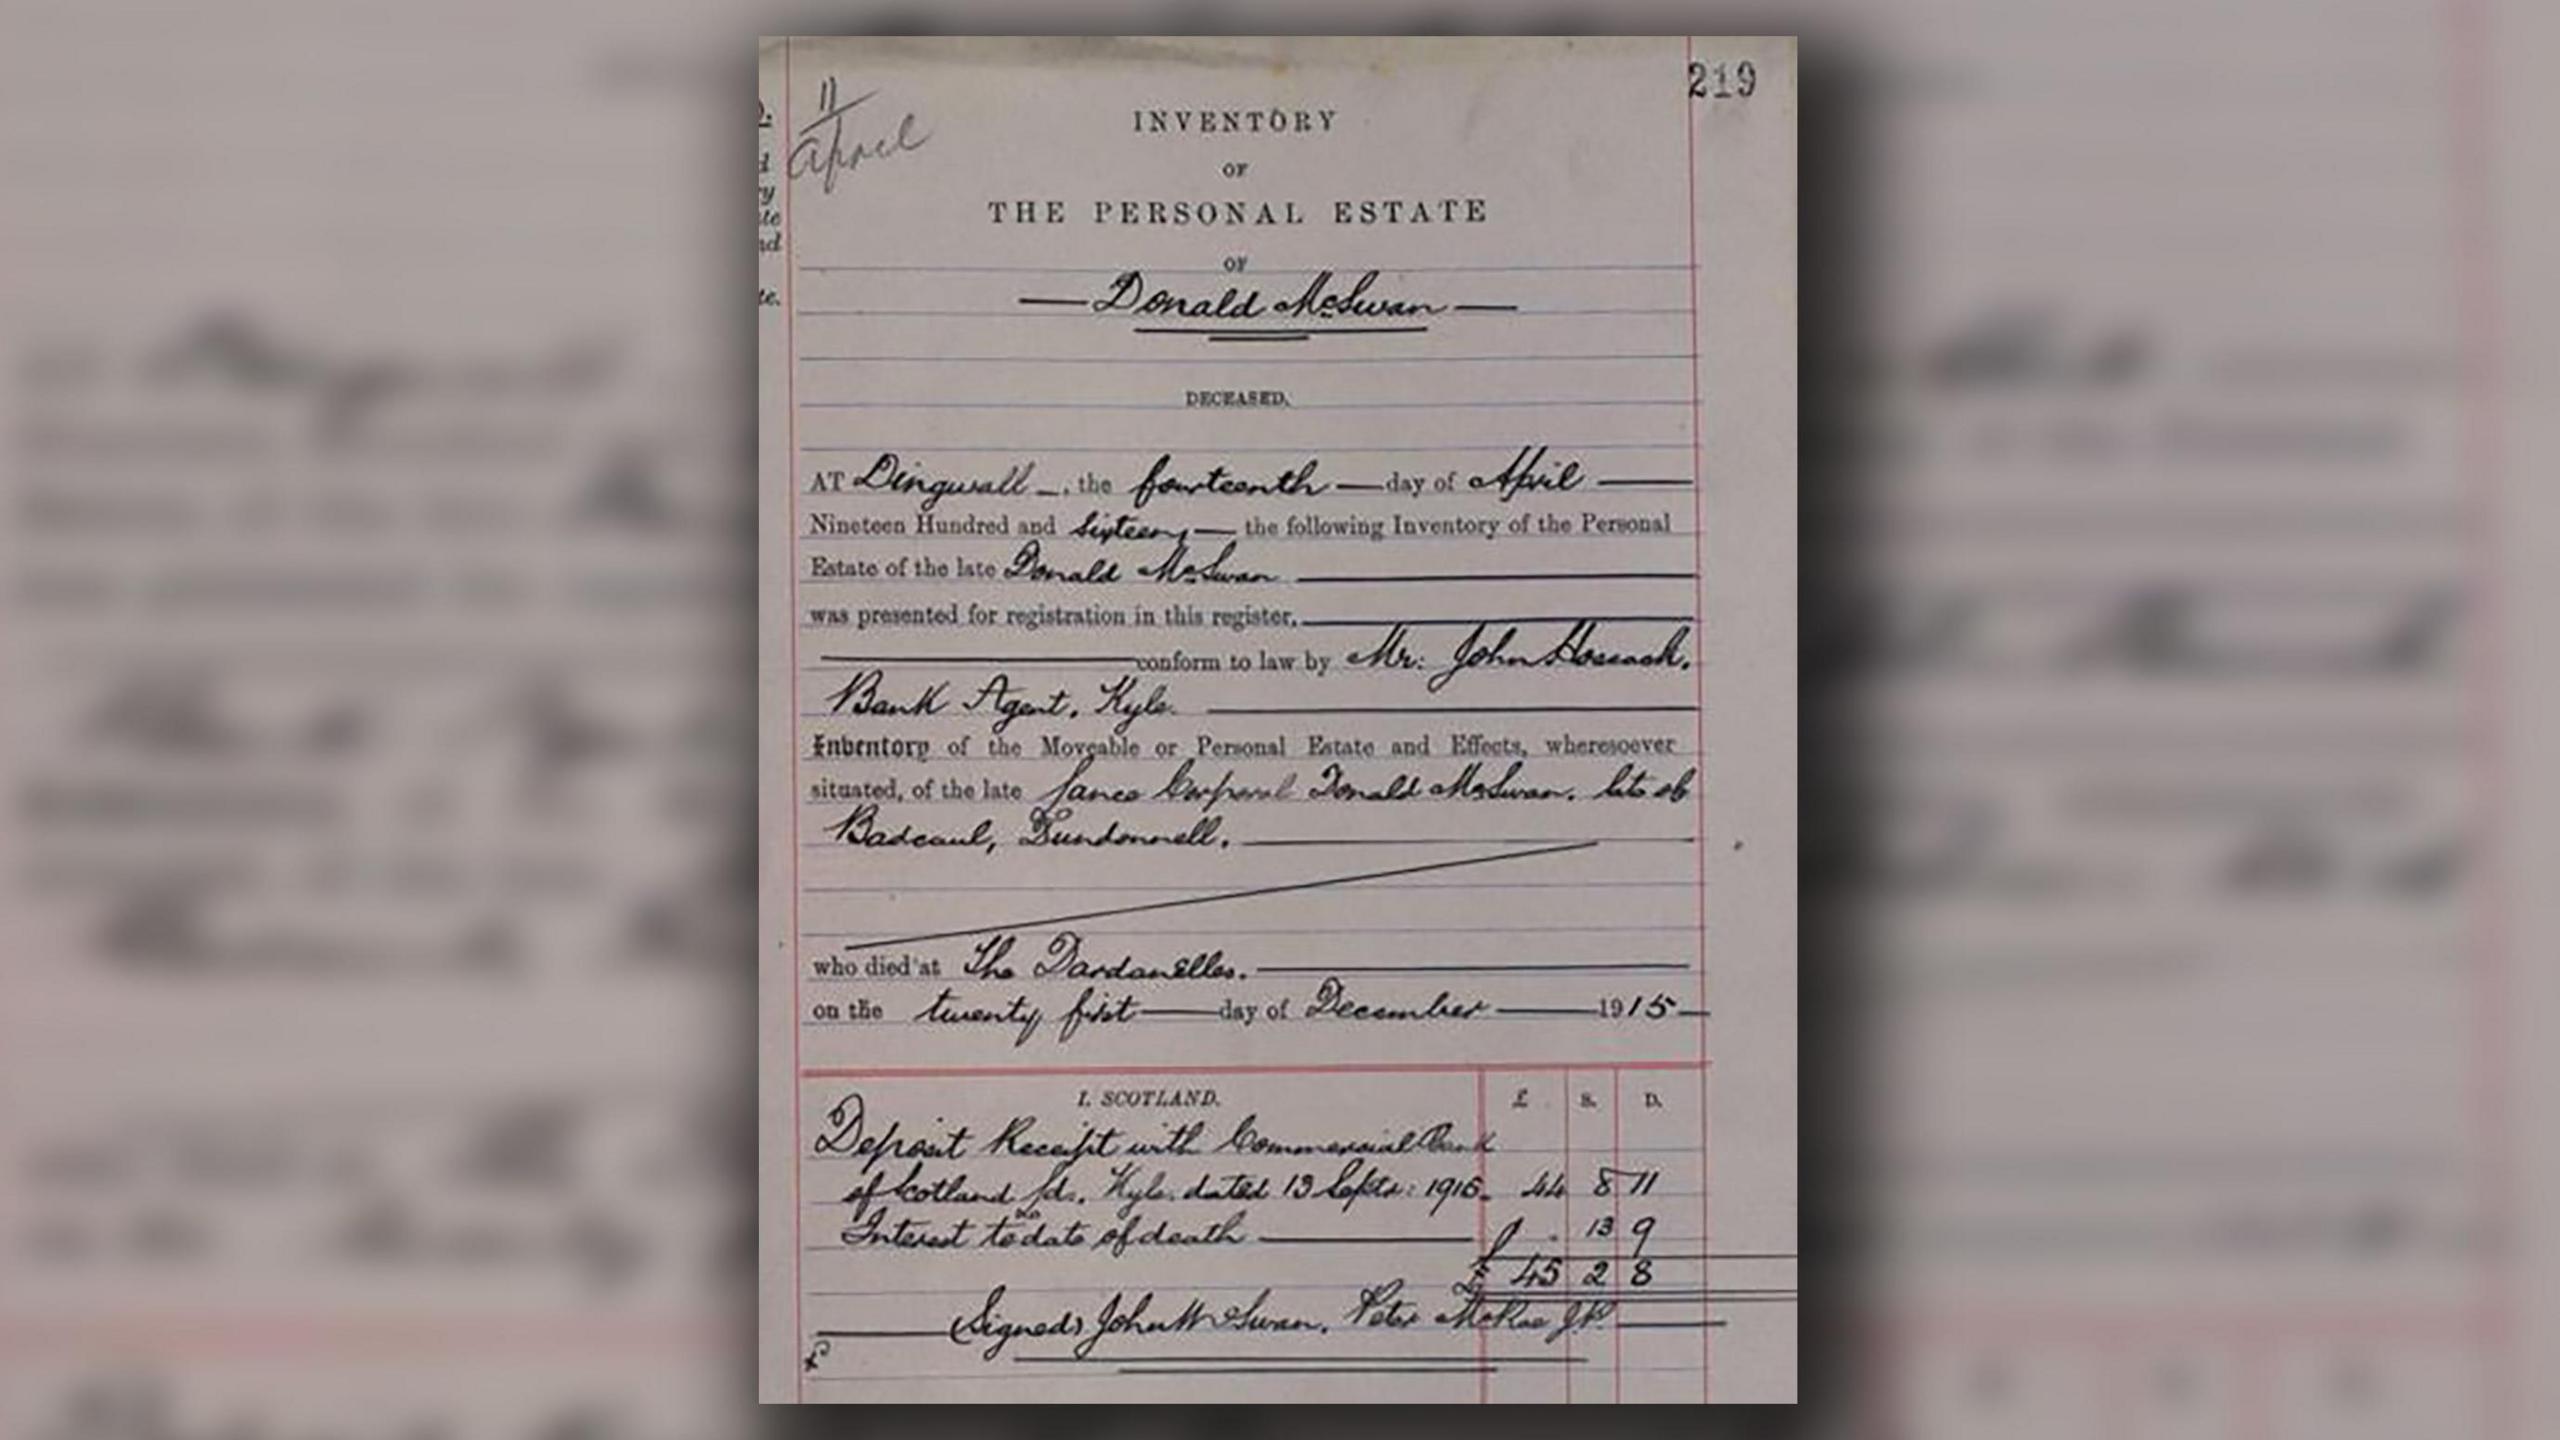 219
11
April
INVENTORY
OF
THE PERSONAL ESTATE
OF
Donald McSwan
DECEASED.
AT Dingwall, the fourteenth day of April
Nineteen Hundred and Sixteen the following Inventory of the Personal
Estate of the late Donald McSwan
was presented for registration in this register.
conform to law by Mr. John Hossack.
Bank Agent, Kyle.
Inventory of the Moveable or Personal Estate and Effects, wheresoever
situated, of the late Lance Corporal Donald McSwan. late of
Badcaul, Dundonnell.
who died at The Dardanelles.
on the twenty first day of December 1915
I. SCOTLAND. £ S. D.
Deposit Receipt with Commercial Bank
of Scotland Ld. Kyle. dated 13 Septr: 1915 44 8 11
Interest to date of death 13 9
£ 45 2 8
(Signed) John McSwan, Peter McRae J.P.